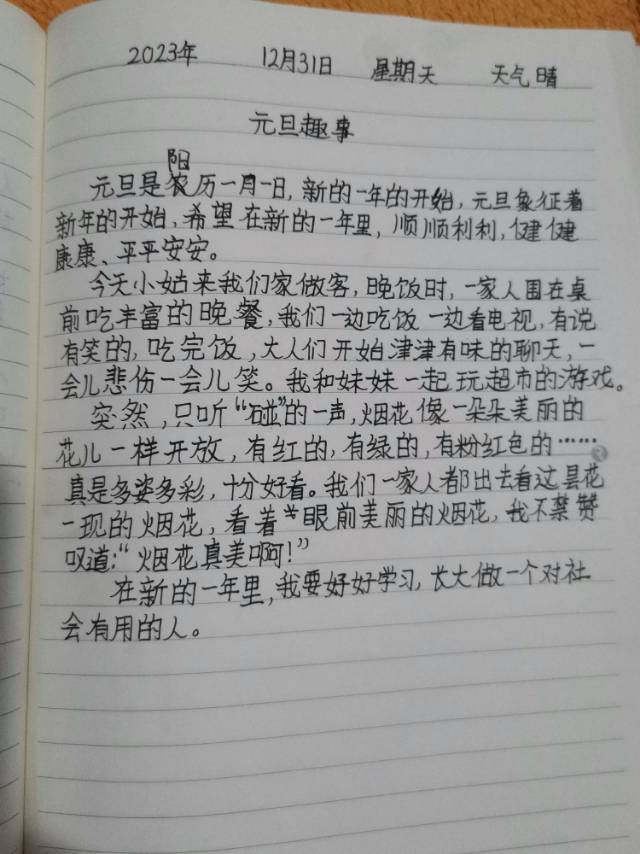 2023年 12月31日 星期天 天气晴
元旦趣事
阳
元旦是农历一月一日,新的一年的开始,元旦象征着
新年的开始,希望在新的一年里,顺顺利利,健健
康康、平平安安。
今天小姑来我们家做客,晚饭时,一家人围在桌
前吃丰富的晚餐,我们一边吃饭一边看电视,有说
有笑的,吃完饭,大人们开始津津有味的聊天,一
会儿悲伤一会儿笑。我和妹妹一起玩超市的游戏。
突然,只听“碰”的一声,烟花像一朵朵美丽的
花儿一样开放,有红的,有绿的,有粉红色的……
真是多姿多彩,十分好看。我们一家人都出去看过昙花
一现的烟花,看着眼前美丽的烟花,我不禁赞
叹道:“烟花真美啊!”
在新的一年里,我要好好学习,长大做一个对社
会有用的人。